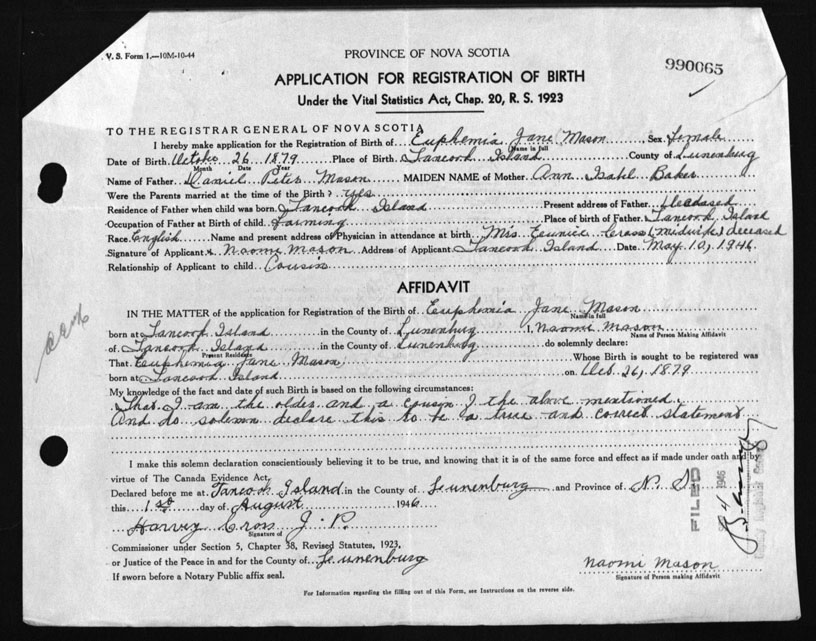 V. S. Form 1.—10M-10-44
PROVINCE OF NOVA SCOTIA
990065
APPLICATION FOR REGISTRATION OF BIRTH
Under the Vital Statistics Act, Chap. 20, R. S. 1923
TO THE REGISTRAR GENERAL OF NOVA SCOTIA
I hereby make application for the Registration of Birth of Euphemia Jane Mason, Sex Female
Name in full
Date of Birth October 26 1879 Place of Birth Tancook Island County of Lunenburg
Month Date Year
Name of Father Daniel Peter Mason MAIDEN NAME of Mother Ann Isabel Baker
Were the Parents married at the time of the Birth? yes
Residence of Father when child was born Tancook Island Present address of Father Deceased
Occupation of Father at Birth of child Farming Place of birth of Father Tancook Island
Race English Name and present address of Physician in attendance at birth Mrs. Eunice Cross (midwife) deceased
Signature of Applicant Naomi Mason Address of Applicant Tancook Island Date May 10, 1946
Relationship of Applicant to child Cousin
AFFIDAVIT
IN THE MATTER of the application for Registration of the Birth of Euphemia Jane Mason
Name in full
born at Tancook Island in the County of Lunenburg I, Naomi Mason
Name of Person Making Affidavit
of Tancook Island in the County of Lunenburg do solemnly declare:
Present Residence
That Euphemia Jane Mason, Whose Birth is sought to be registered was
born at Tancook Island on Oct. 26, 1879
My knowledge of the fact and date of such Birth is based on the following circumstances:
That I am the older and a cousin of the above mentioned.
And do solemn declare this to be a true and correct statement
I make this solemn declaration conscientiously believing it to be true, and knowing that it is of the same force and effect as if made under oath and by
virtue of The Canada Evidence Act.
Declared before me at Tancook Island in the County of Lunenburg and Province of N. S.
this 1st day of August 1946
Harvey Cross J. P.
Signature of
Commissioner under Section 5, Chapter 38, Revised Statutes, 1923,
or Justice of the Peace in and for the County of Lunenburg
If sworn before a Notary Public affix seal.
Naomi Mason
Signature of Person making Affidavit
For Information regarding the filling out of this Form, see Instructions on the reverse side.
FILED
1946